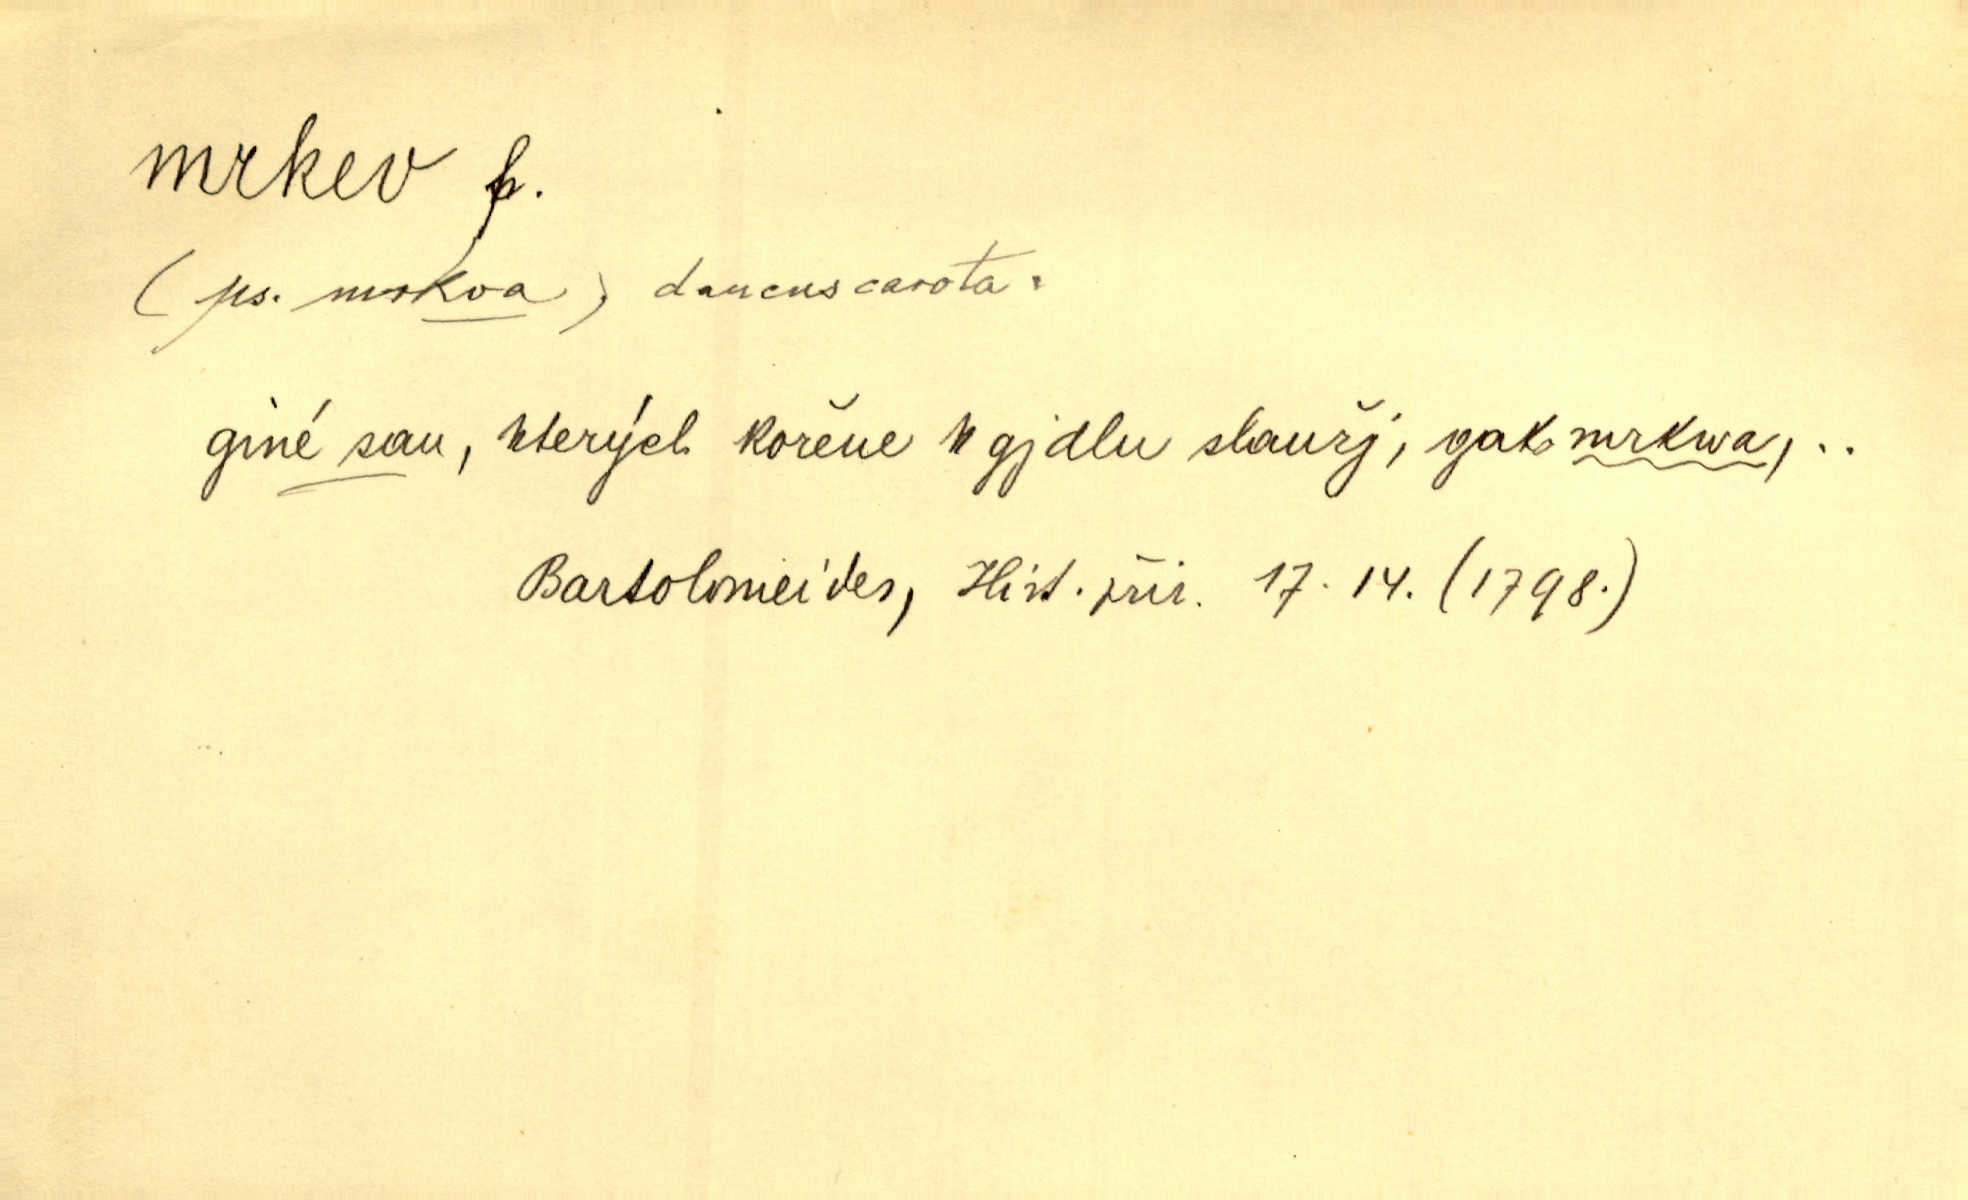 mrkev f.
(ps. mrkva) daucus carota.
giné sau, kterých kořěne k gjdlu slaužj, gako mrkwa, ..
Bartolomeides, Hist. přir. 17. 14. (1798.)